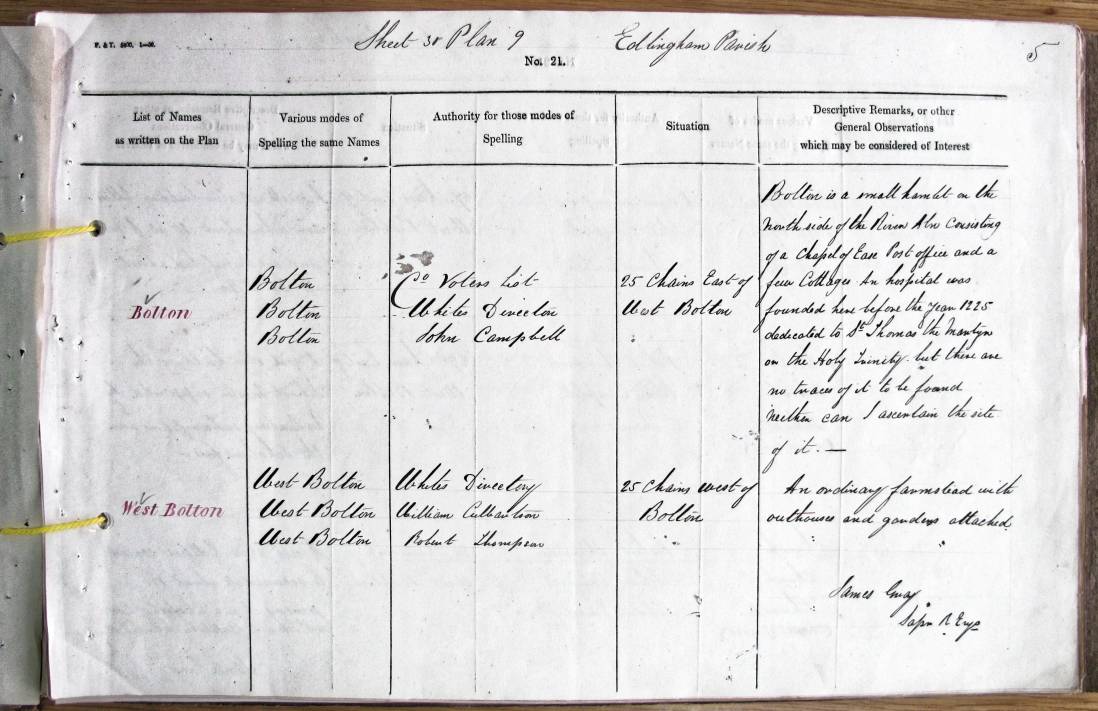 Sheet 35 Plan 9 Edlingham Parish 5
No. 21.
List of Names
as written on the Plan
Various modes of
Spelling the same Names
Authority for those modes of
Spelling
Situation
Descriptive Remarks, or other
General Observations
which may be considered of Interest
Bolton
Bolton
Bolton
Bolton
Co Voters List
Whites Director
John Campbell
25 Chains East of
West Bolton
Bolton is a small hamlet on the
North side of the River Aln Consisting
of a Chapel of Ease Post office and a
few Cottages An hospital was
founded here before the Year 1225
dedicated to St Thomas the Martyr
or the Holy Trinity but there are
no traces of it to be found
Neither can I ascertain the site
of it. —
West Bolton
West Bolton
West Bolton
West Bolton
Whites Directory
William Culbertson
Robert Thompson
25 Chains west of
Bolton
An ordinary farmstead with
outhouses and gardens attached
James Gray
Sapr R. Engs